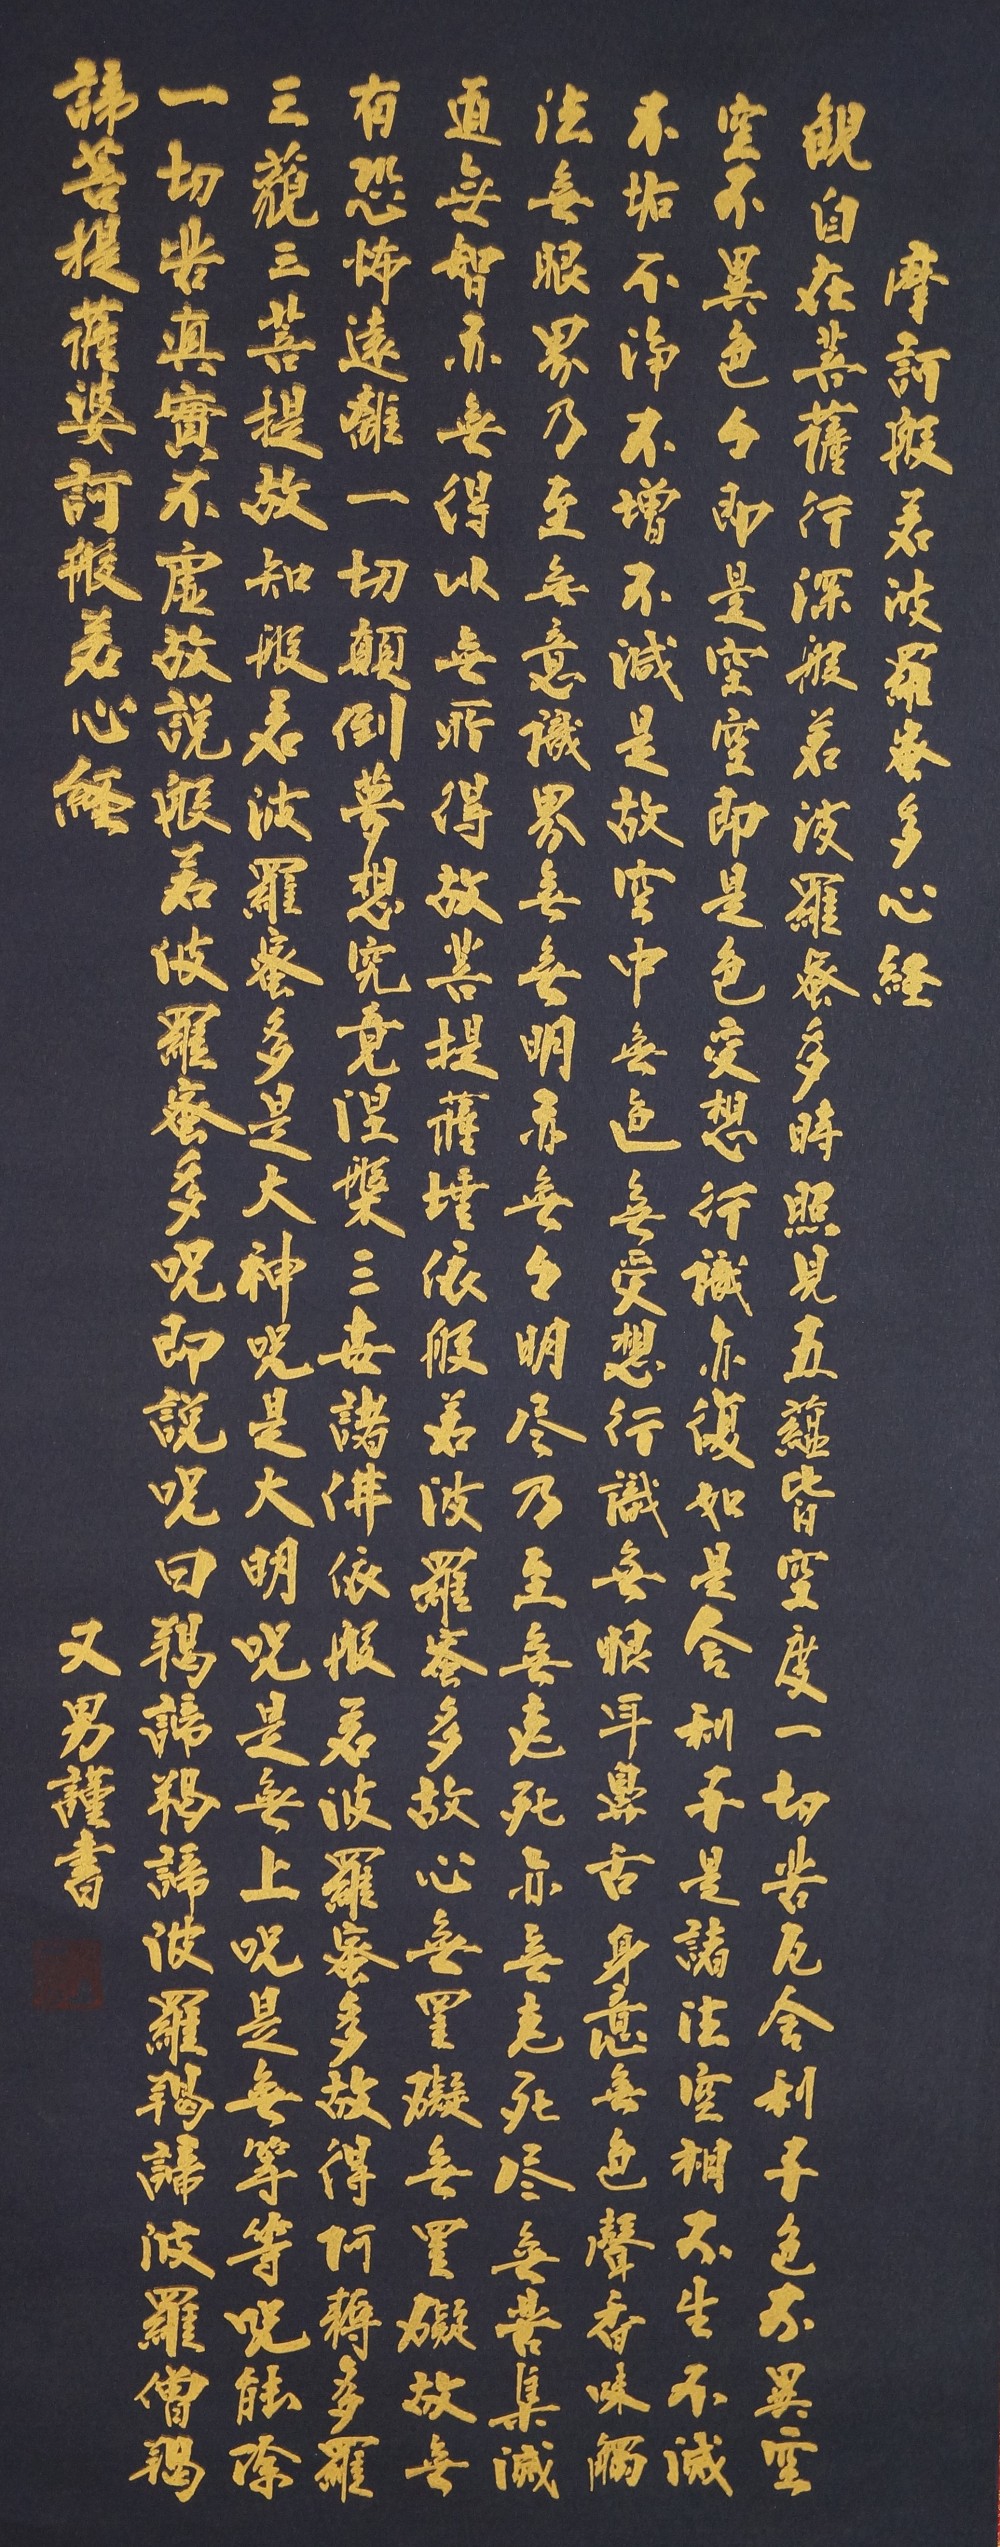 摩訶般若波羅蜜多心経
観自在菩薩行深般若波羅蜜多時照見五蘊皆空度一切苦厄舎利子色不異空
空不異色々即是空空即是色受想行識亦復如是舎利子是諸法空相不生不滅
不垢不浄不増不減是故空中無色無受想行識無眼耳鼻舌身意無色聲香味觸
法無眼界乃至無意識界無無明亦無々明尽乃至無老死亦無老死尽無苦集滅
道無智亦無得以無所得故菩提薩埵依般若波羅蜜多故心無罣礙無罣礙故無
有恐怖遠離一切顛倒夢想究竟涅槃三世諸佛依般若波羅蜜多故得阿耨多羅
三藐三菩提故知般若波羅蜜多是大神呪是大明呪是無上呪是無等等呪能除
一切苦真實不虚故説般若波羅蜜多呪即説呪曰羯諦羯諦波羅羯諦波羅僧羯
諦菩提薩婆訶般若心経
又男謹書